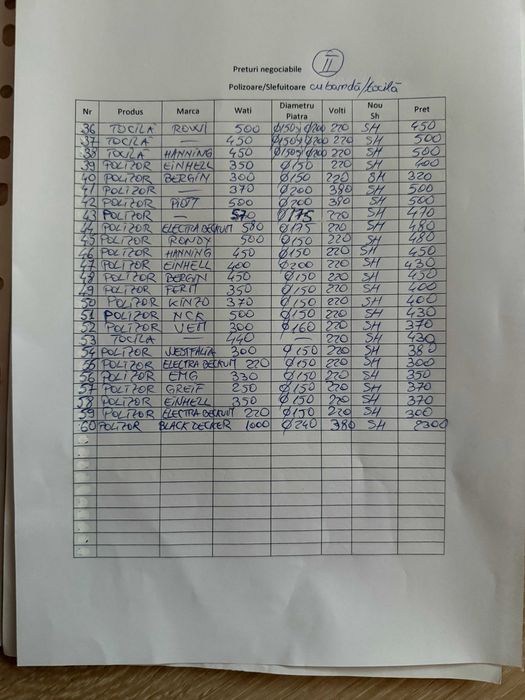 Preturi negociabile II
Polizoare/Slefuitoare cu bandă/tocilă
Nr Produs Marca Wati Diametru Piatra Volti Nou Sh Pret
36 TOCILĂ ROWI 500 Ø150y Ø200 220 SH 450
37 TOCILĂ — 450 Ø150y Ø200 220 SH 500
38 TOCILĂ HANNING 450 Ø150y Ø200 220 SH 500
39 POLIZOR EINHELL 350 Ø150 220 SH 400
40 POLIZOR BERGIN 300 Ø150 220 SH 320
41 POLIZOR — 370 Ø200 380 SH 500
42 POLIZOR 500 Ø200 380 SH 500
43 POLIZOR — 570 Ø175 220 SH 470
44 POLIZOR ELECTRA BECKUM 500 Ø175 220 SH 480
45 POLIZOR RONDY 500 Ø150 220 SH 480
46 POLIZOR HANNING 450 Ø150 220 SH 450
47 POLIZOR EINHELL 400 Ø200 220 SH 430
48 POLIZOR BERGIN 450 Ø150 220 SH 450
49 POLIZOR FERM 350 Ø150 220 SH 400
50 POLIZOR KINZO 370 Ø150 220 SH 400
51 POLIZOR NCK 500 Ø150 220 SH 430
52 POLIZOR VEM 300 Ø160 220 SH 370
53 TOCILA — 440 — 220 SH 430
54 POLIZOR WESTFALIA 300 Ø150 220 SH 380
55 POLIZOR ELECTRA BECKUM 220 Ø150 220 SH 300
56 POLIZOR EMG 330 Ø150 220 SH 350
57 POLIZOR GREIF 250 Ø150 220 SH 370
58 POLIZOR EINHELL 350 Ø150 220 SH 370
59 POLIZOR ELECTRA BECKUM 220 Ø150 220 SH 300
60 POLIZOR BLACK DECKER 1000 Ø240 380 SH 2300